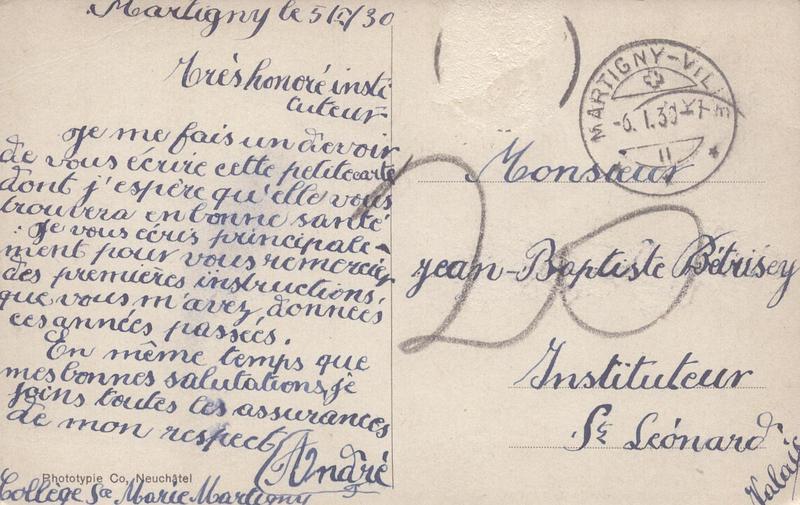 Martigny le 5/I/30
Très honoré insti
tuteur
Je me fais un devoir
de vous écrire cette petite carte
dont j'espère qu'elle vous
trouvera en bonne santé.
Je vous écris principale-
ment pour vous remercier
des premières instructions,
que vous m'avez données
ces années passées.
En même temps que
mes bonnes salutations, je
joins toutes les assurances
de mon respect
André
Phototypie Co, Neuchâtel
Collège Ste Marie Martigny
MARTIGNY-VILLE
-6.I.30
II
20
Monsieur
Jean-Baptiste Bétrisey
Instituteur
St Léonard
Valais